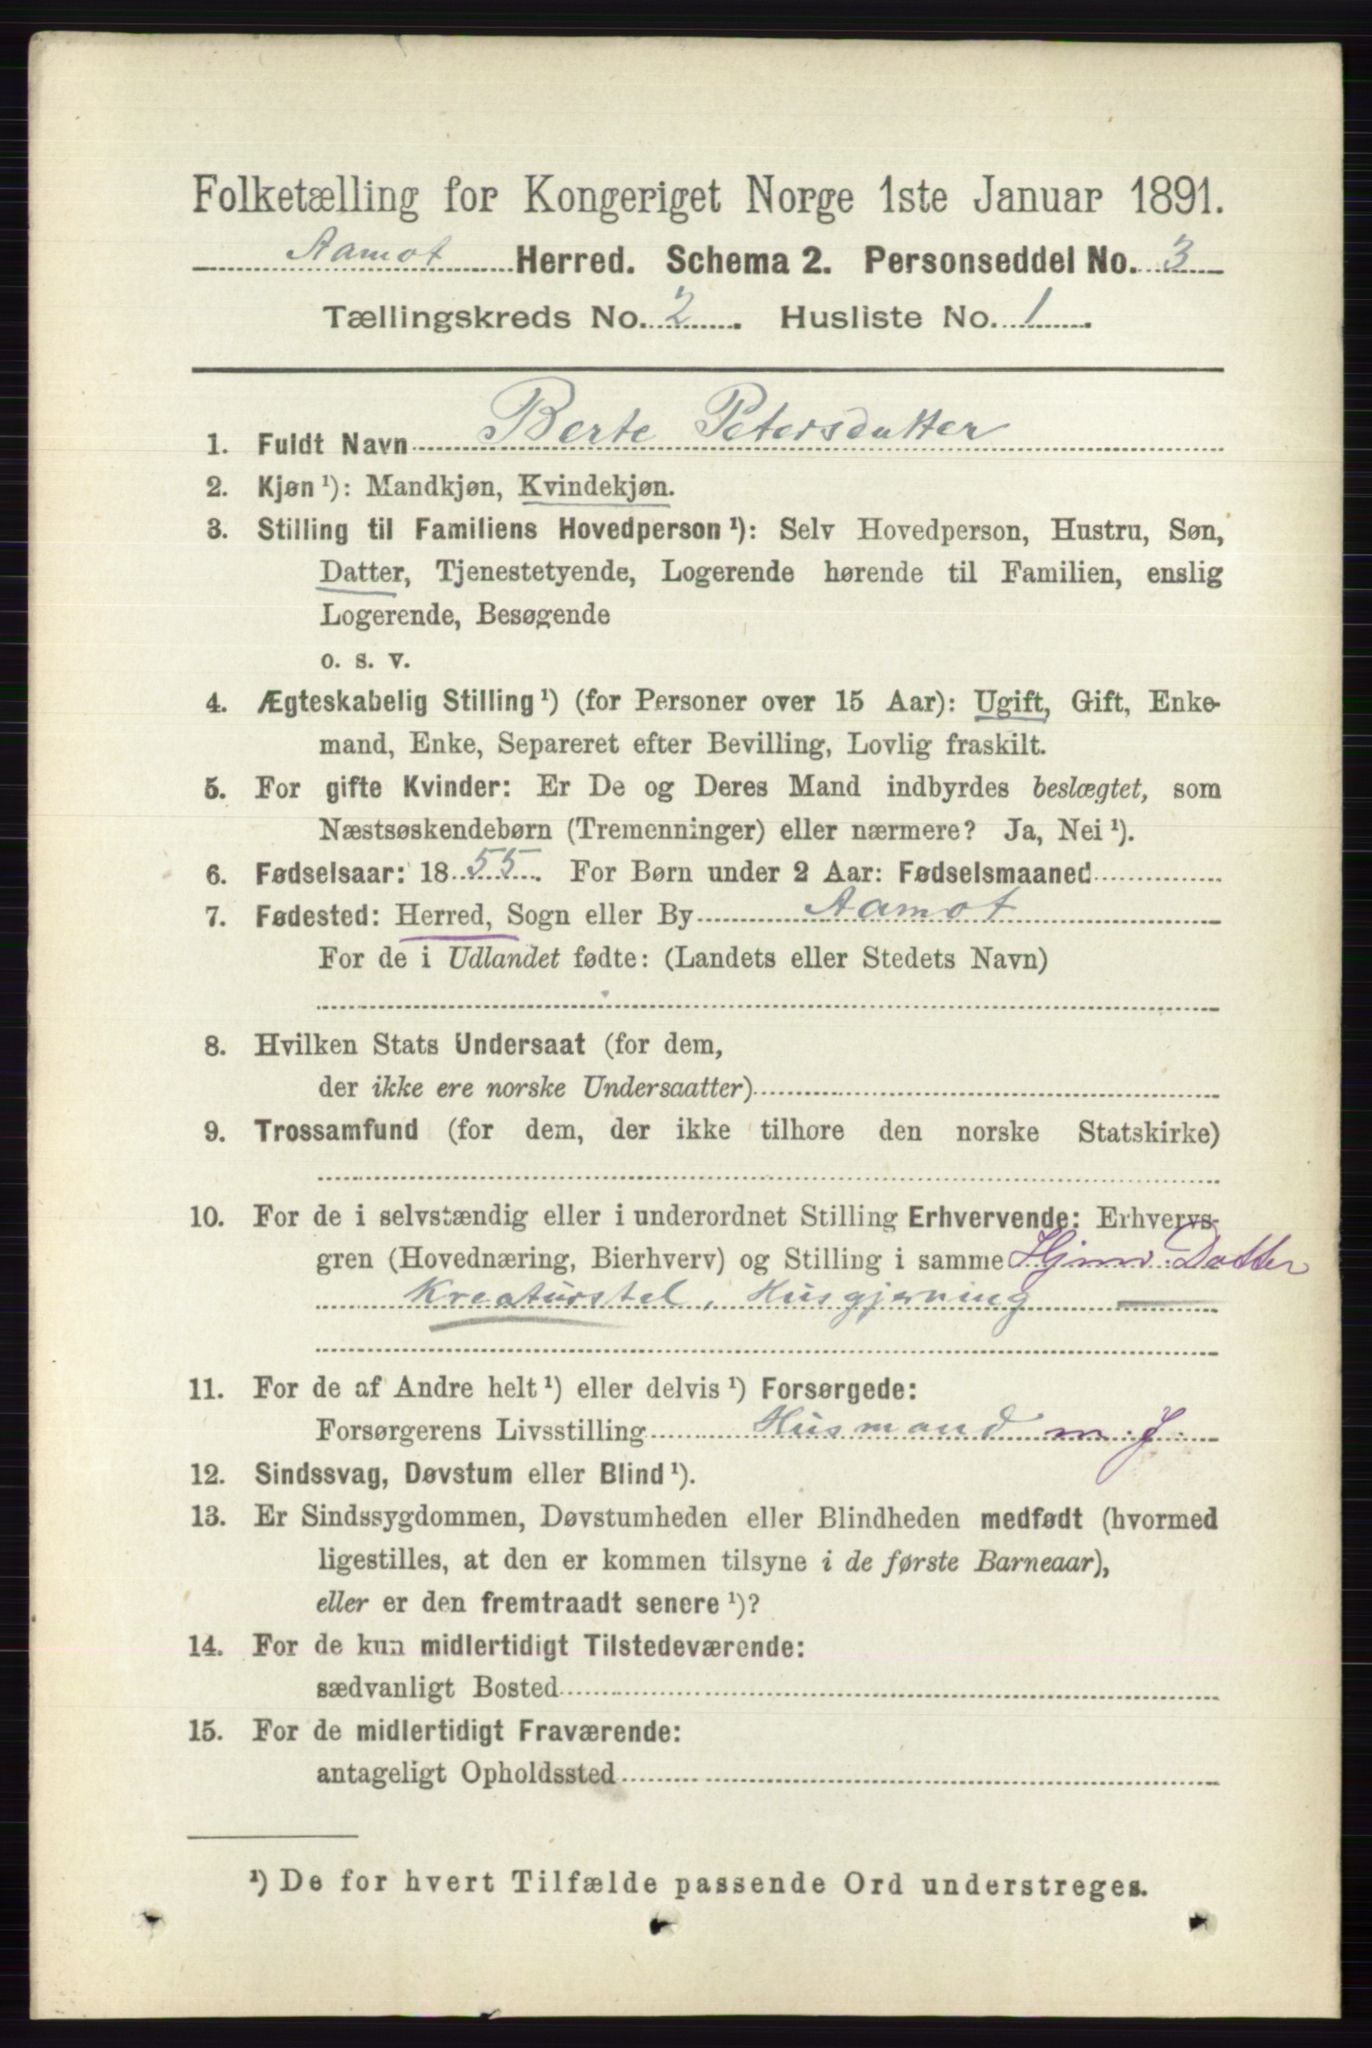 Folketælling for Kongeriget Norge 1ste Januar 1891.
Aamot Herred. Schema 2. Personseddel No. 3
Tællingskreds No. 2. Husliste No. 1.
1. Fuldt Navn Berte Petersdatter
2. Kjøn ¹): Mandkjøn, Kvindekjøn.
3. Stilling til Familiens Hovedperson ¹): Selv Hovedperson, Hustru, Søn,
Datter, Tjenestetyende, Logerende hørende til Familien, enslig
Logerende, Besøgende
o. s. v.
4. Ægteskabelig Stilling ¹) (for Personer over 15 Aar): Ugift, Gift, Enke-
mand, Enke, Separeret efter Bevilling, Lovlig fraskilt.
5. For gifte Kvinder: Er De og Deres Mand indbyrdes beslægtet, som
Næstsøskendebørn (Tremenninger) eller nærmere? Ja, Nei ¹).
6. Fødselsaar: 1855. For Børn under 2 Aar: Fødselsmaaned
7. Fødested: Herred, Sogn eller By Aamot
For de i Udlandet fødte: (Landets eller Stedets Navn)
8. Hvilken Stats Undersaat (for dem,
der ikke ere norske Undersaatter)
9. Trossamfund (for dem, der ikke tilhøre den norske Statskirke)
10. For de i selvstændig eller i underordnet Stilling Erhvervende: Erhvervs-
gren (Hovednæring, Bierhverv) og Stilling i samme Hjmv. Datter
Kreaturstel, Husgjerning
11. For de af Andre helt ¹) eller delvis ¹) Forsørgede:
Forsørgerens Livsstilling Husmand m. J.
12. Sindssvag, Døvstum eller Blind ¹).
13. Er Sindssygdommen, Døvstumheden eller Blindheden medfødt (hvormed
ligestilles, at den er kommen tilsyne i de første Barneaar),
eller er den fremtraadt senere ¹)?
14. For de kun midlertidigt Tilstedeværende:
sædvanligt Bosted
15. For de midlertidigt Fraværende:
antageligt Opholdssted
¹) De for hvert Tilfælde passende Ord understreges.